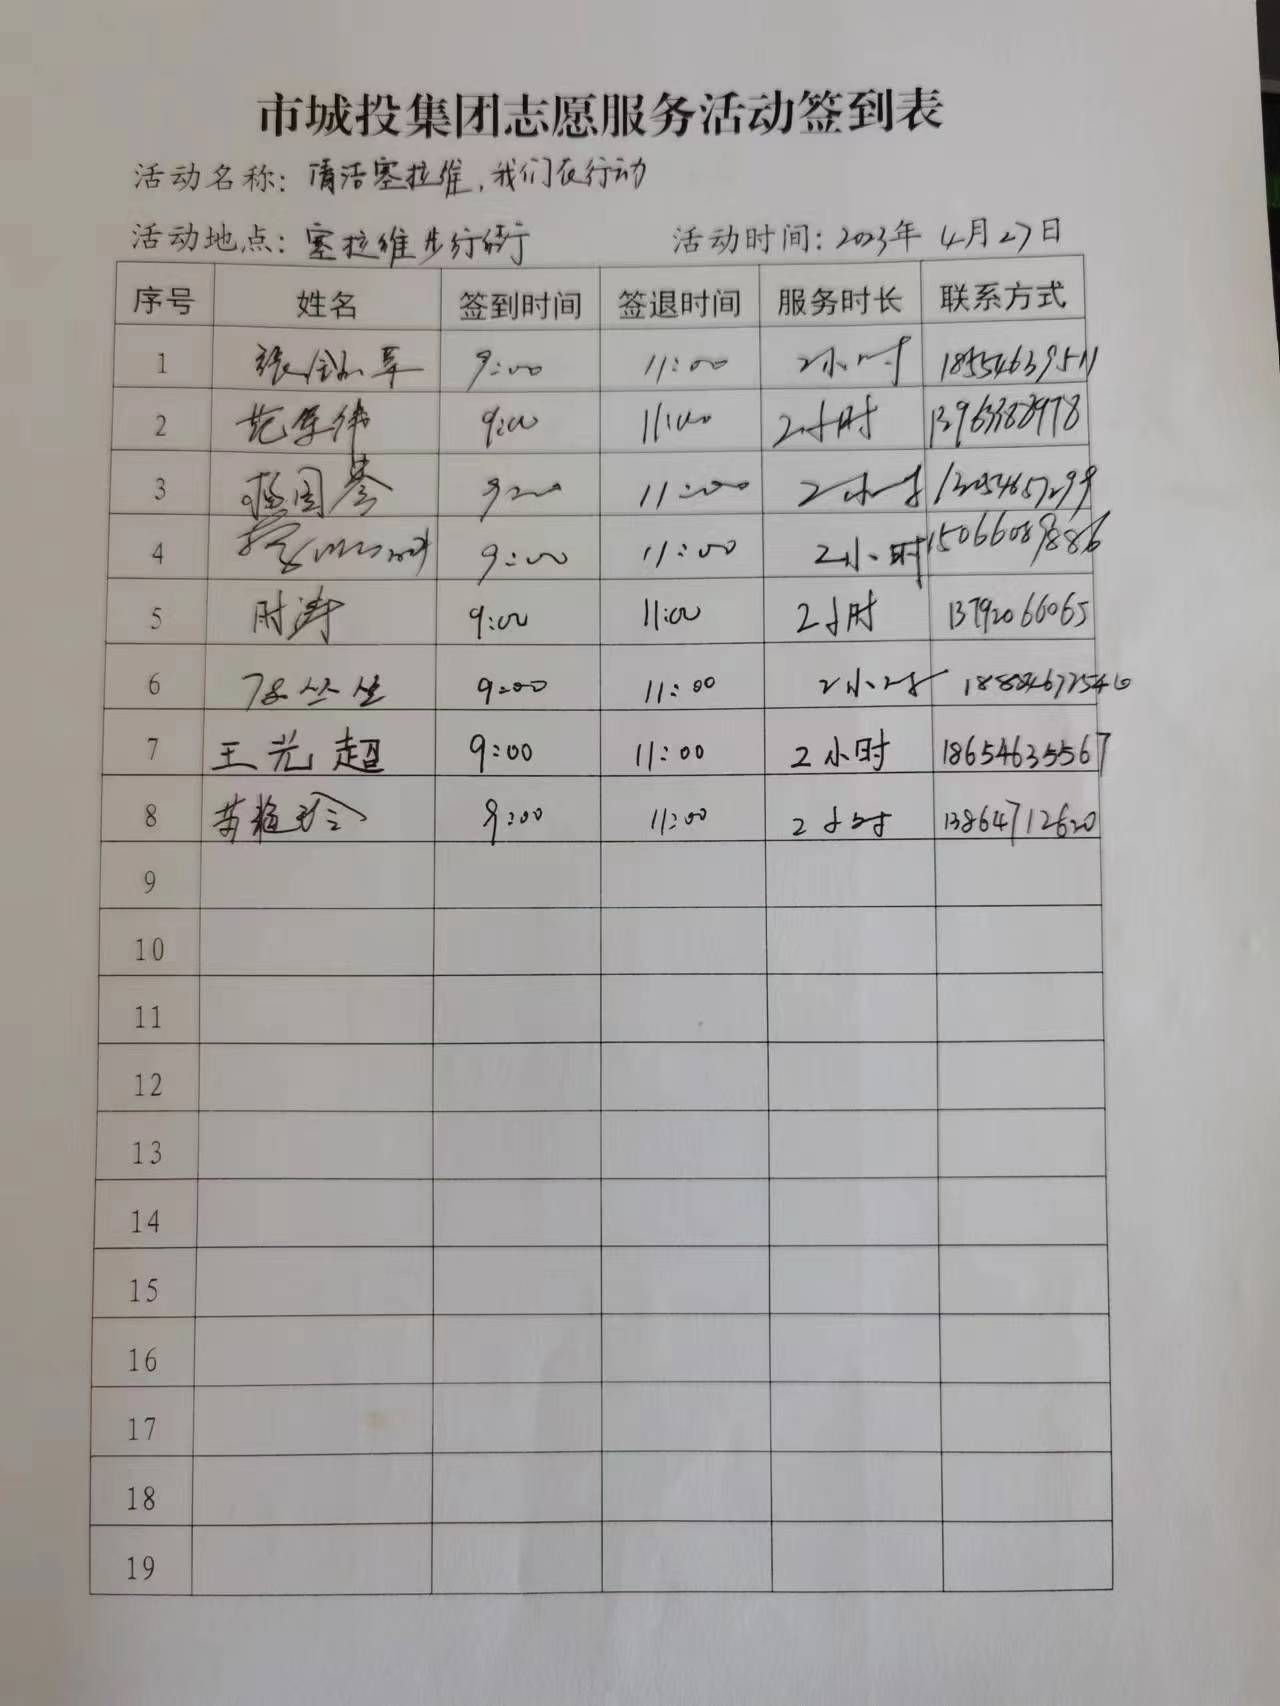 市城投集团志愿服务活动签到表
活动名称：清洁塞拉维，我们在行动
活动地点：塞拉维步行街 活动时间：2023年4月27日
序号 姓名 签到时间 签退时间 服务时长 联系方式
1 9:00 11:00 2小时 18554639511
2 范军伟 9:00 11:00 2小时
3 11:00 2小时
4 9:00 11:00 2小时 15066089886
5 时涛 9:00 11:00 2小时 13792066065
6 9:00 11:00 2小时
7 王光超 9:00 11:00 2小时 18654635567
8 9:00 11:00 2小时 13864712620
9
10
11
12
13
14
15
16
17
18
19